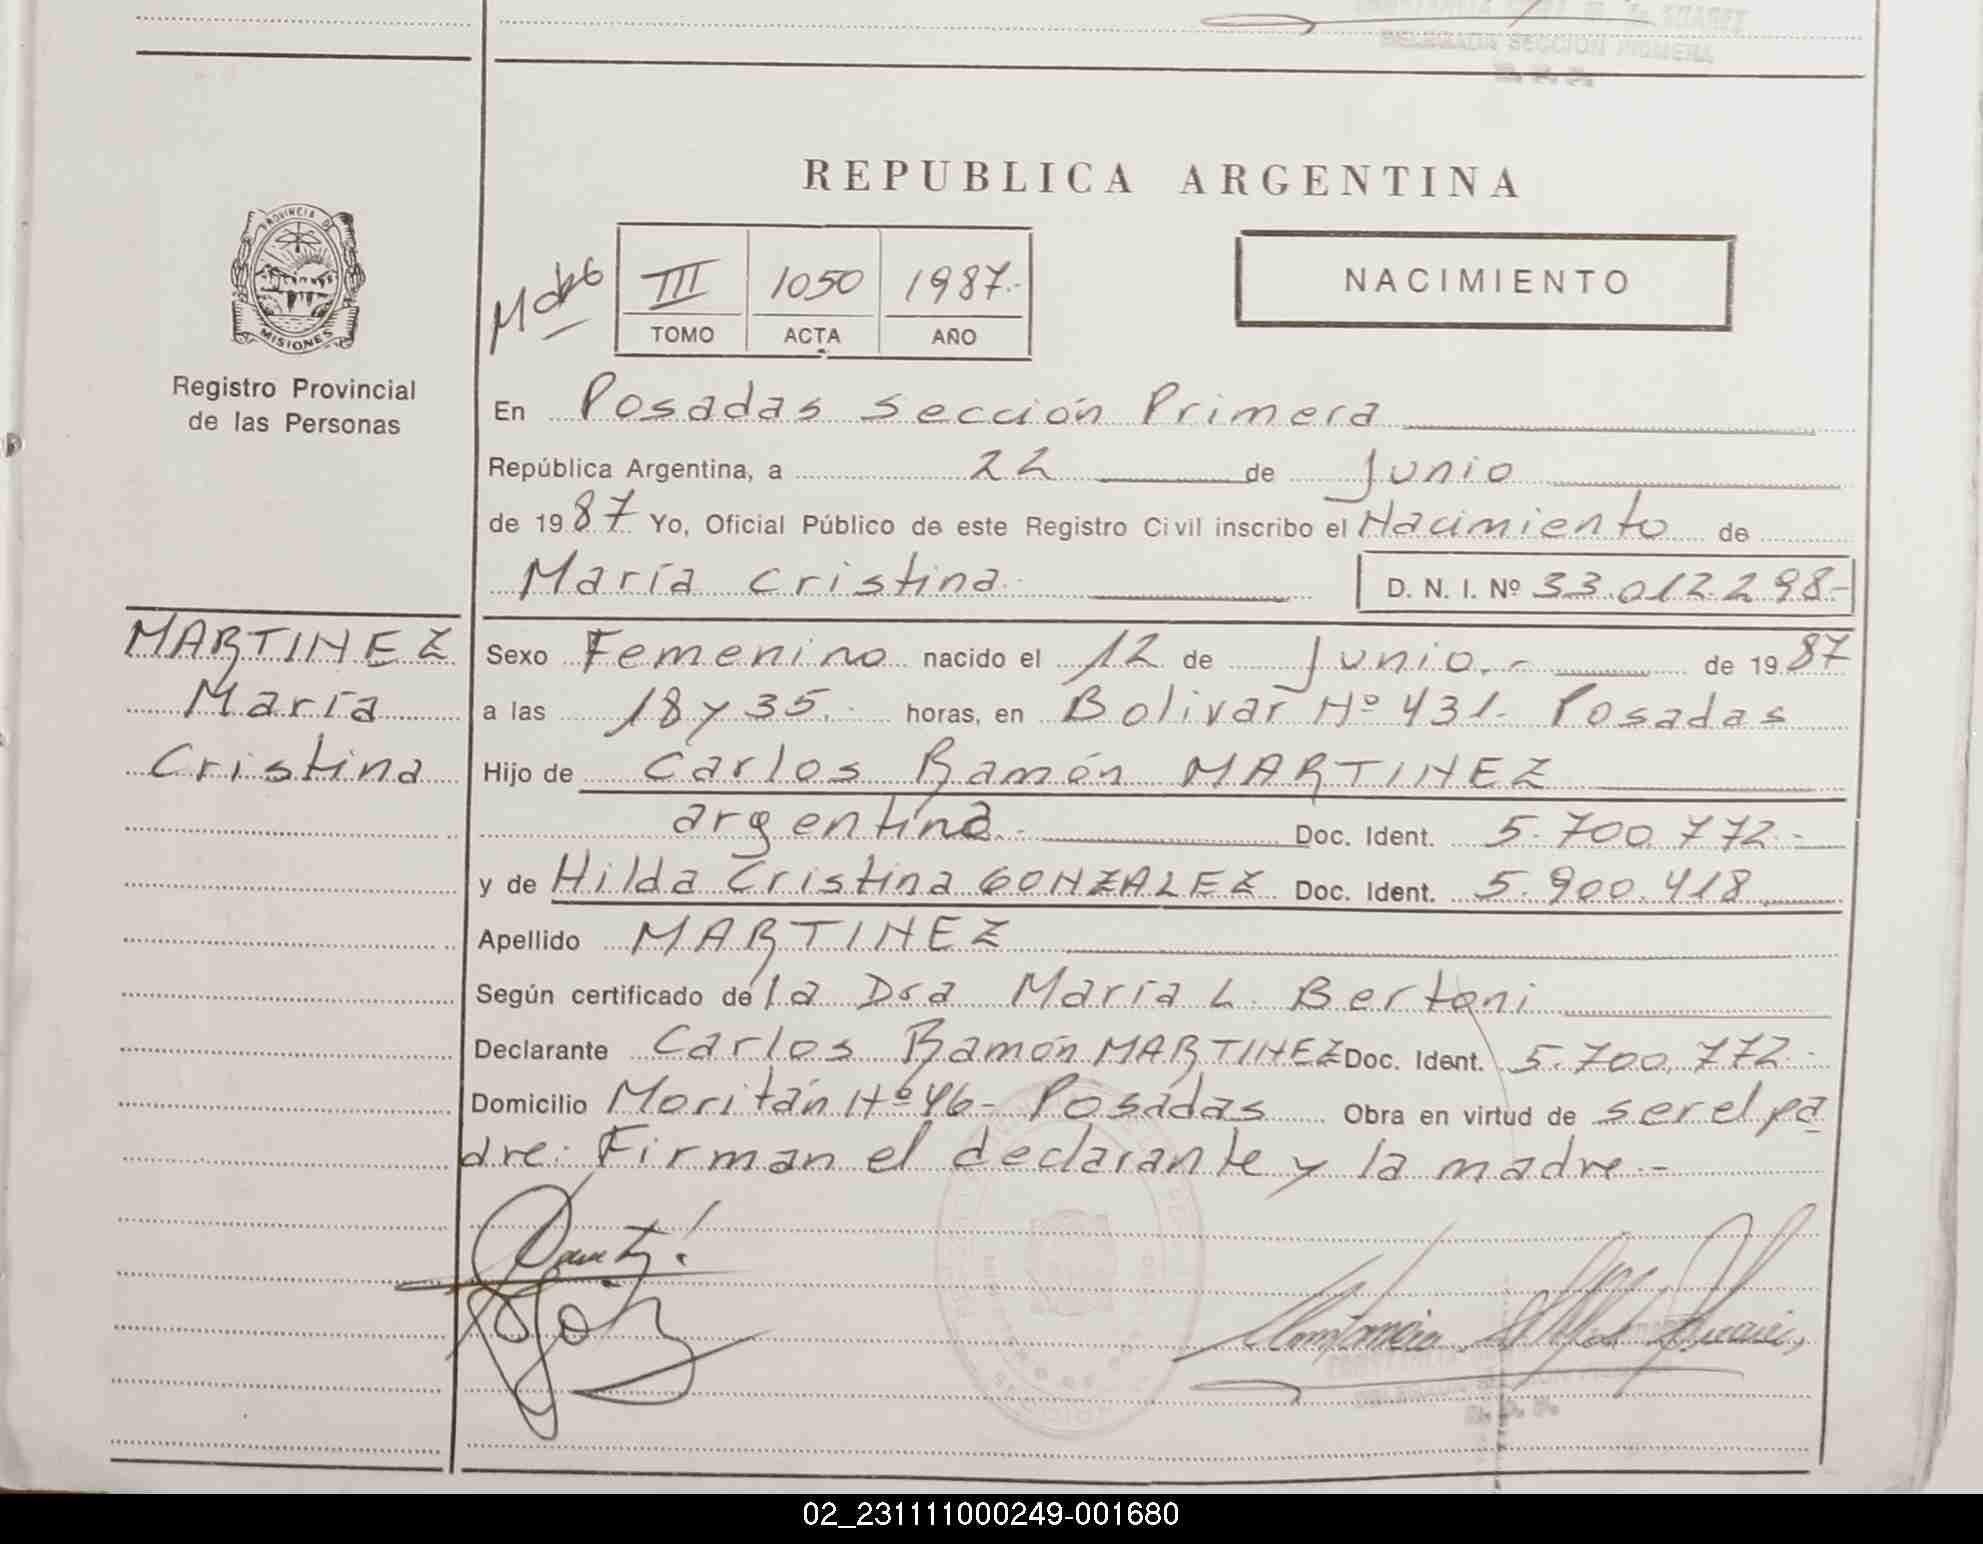 DELEGADA SECCION PRIMERA
REPUBLICA ARGENTINA
PROVINCIA DE
MISIONES
Registro Provincial
de las Personas
III 1050 1987.-
TOMO ACTA AÑO
NACIMIENTO
En Posadas Sección Primera
República Argentina, a 22 de Junio
de 1987. Yo, Oficial Público de este Registro Civil inscribo el Nacimiento de
María Cristina.
D. N. I. Nº 33.012.298-
MARTINEZ
María
Cristina
Sexo Femenino nacido el 12 de Junio.- de 1987
a las 18 y 35.- horas, en Bolivar Nº 431- Posadas
Hijo de Carlos Ramón MARTINEZ
argentina.- Doc. Ident. 5.700.772.-
y de Hilda Cristina GONZALEZ Doc. Ident. 5.900.418
Apellido MARTINEZ
Según certificado de la Dra María L. Bertoni
Declarante Carlos Ramón MARTINEZ Doc. Ident. 5.700.772.-
Domicilio Moritán Nº 46- Posadas Obra en virtud de ser el pa
dre. Firman el declarante y la madre.-
02_231111000249-001680